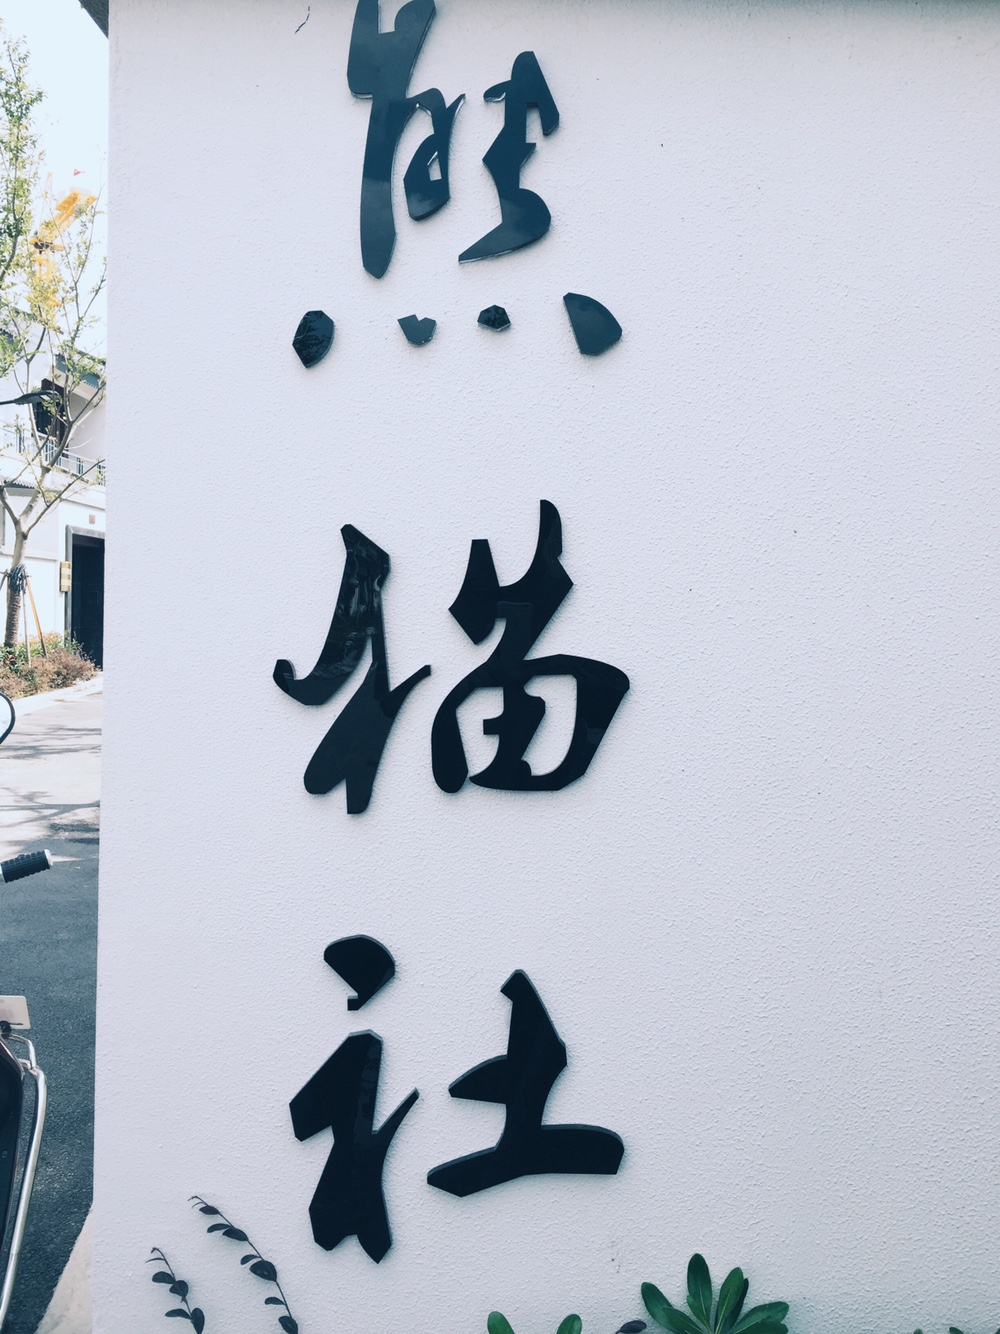 熊猫社